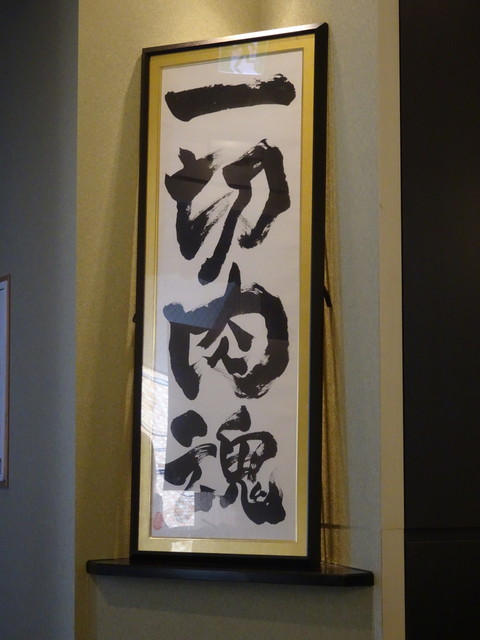 一切肉魂